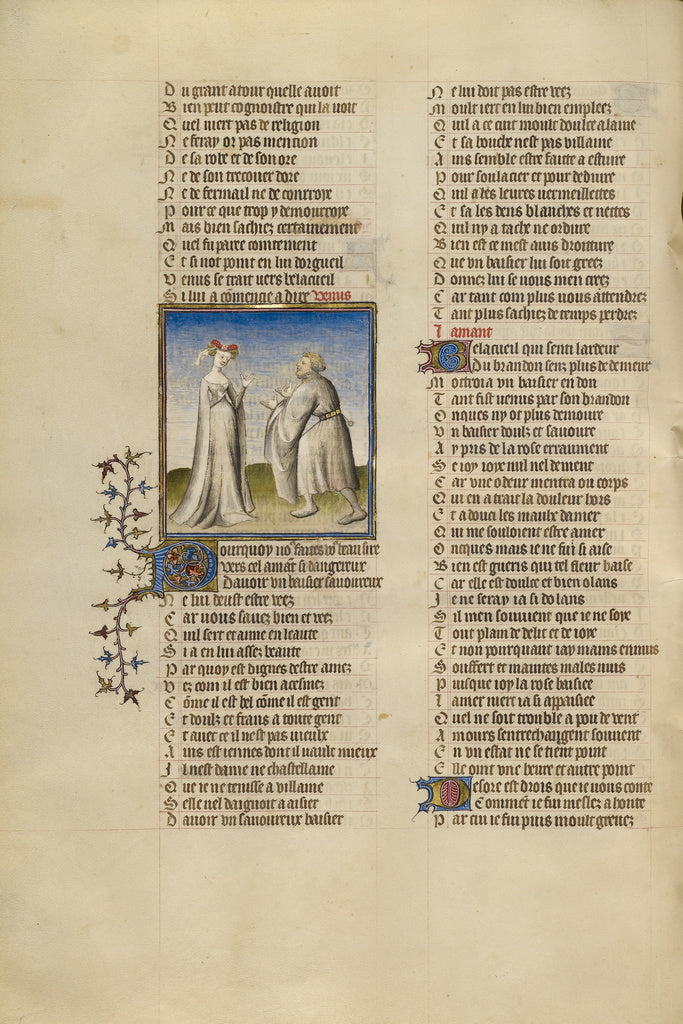 Du grant atour quelle auoit
Bien peut cognoistre qui la voit
Quel niert pas de religion
Ne feray or pas mencion
De sa robe et de son ore
Ne de son trecouer dore
Ne de fermail ne de conrroye
Pource que trop y demourroye
Mais bien sachiez certainement
Quel fu paree cointement
Et si not point en lui dorgueil
Venus se trait vers belacueil
Si lui a cōmencie a dire Venus
Pourquoy vo9 faites vo9 beau sire
Vers cel amāt si dangereux
Dauoir vn baisier sauoureux
Ne lui deust estre veez
Car vous sauez bien et veez
Quil sert et aime en leaute
Si a en lui assez beaute
Par quoy est dignes destre amez
Vez com il est bien acesmez
Cōme il est bel cōme il est gent
Et doulz et frans a toute gent
Et auec ce il nest pas vieulx
Ains est iennes dont il vault mieux
Il nest dame ne chastellaine
Que ie ne tenisse a villaine
Selle nel daignoit aaisier
Dauoir vn sauoureux baisier
Ne lui doit pas estre veez
Moult iert en lui bien emploiez
Quil a ce cuit moult doulce alaine
Et sa bouche nest pas villaine
Ains semble estre faicte a estuire
Pour soulacier et pour deduire
Quil a les leures vermeillettes
Et sa les dens blanches et nettes
Quil ny a tache ne ordure
Bien est ce mest auis droitture
Que vn baisier lui soit greez
Donnez lui se vous men creez
Car tant com plus vous attendrez
Tant plus sachiez de temps perdrez
lamant
Belacueil qui senti lardeur
Du brandon senz plus de demeur
Moctroia vn baisier en don
Tant fist venus par son brandon
Onques ny ot plus demoure
Vn baisier doulz et sauoure
Ay pris de la rose erraument
Se ioy ioye nul nel dement
Car vne odeur mentra ou corps
Qui en a trait la douleur hors
Et adouci les maulx damer
Qui me souloient estre amer
Oncques mais ie ne fui si aise
Bien est gueris qui tel fleur baise
Car elle est doulce et bien olans
Ie ne seray ia si dolans
Sil men souuient que ie ne soye
Tout plain de delit et de ioye
Et non pourquant iay mains ennuis
Souffert et maintes males nuis
Puisque ioy la rose baisiee
Lamer niert ia si appaisiee
Quel ne soit trouble a pou de vent
Amours sentrechangent souuent
En vn estat ne se tient point
Elle oint vne heure et autre point
Desore est drois que ie vous conte
Comment ie fui meslez a honte
Par cui ie fui puis moult greuez